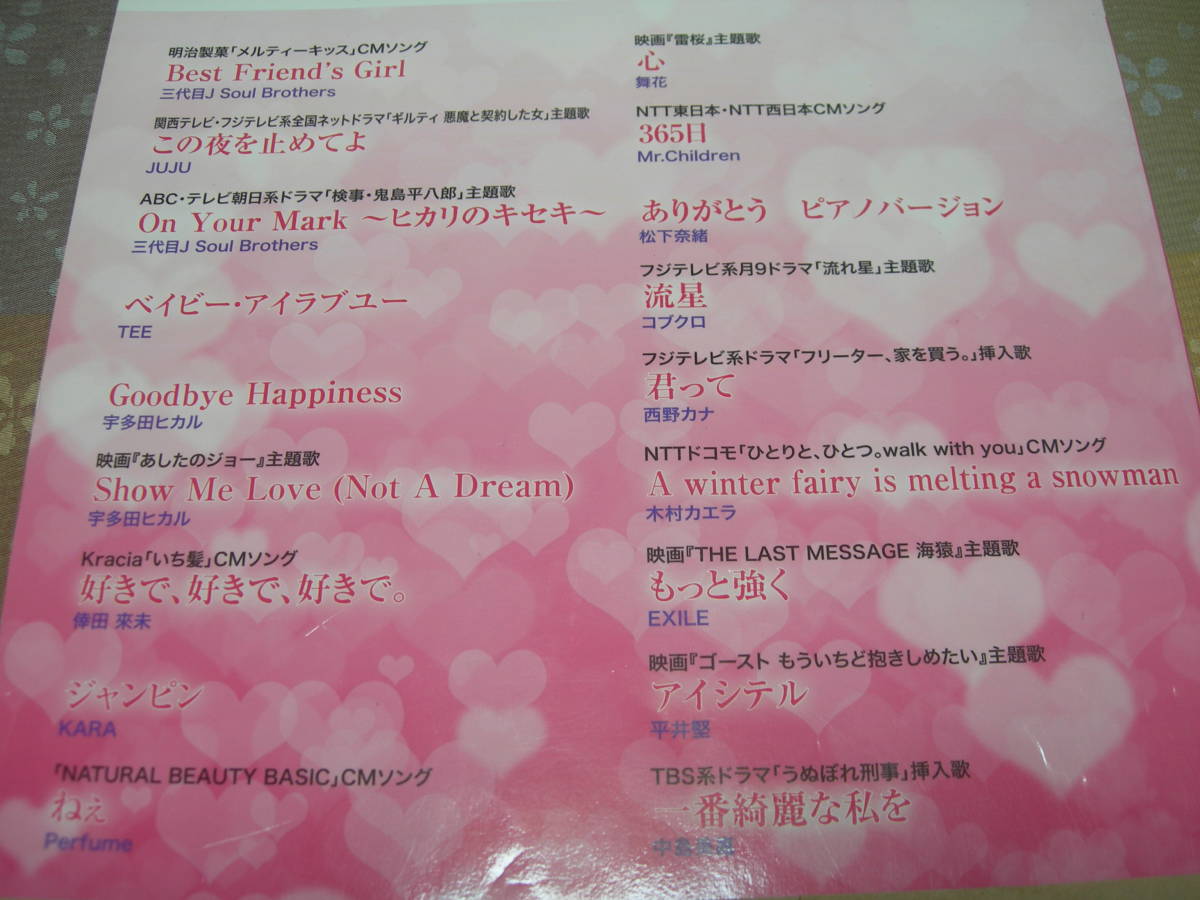 明治製菓「メルティーキッス」CMソング
Best Friend's Girl
三代目J Soul Brothers
関西テレビ・フジテレビ系全国ネットドラマ「ギルティ 悪魔と契約した女」主題歌
この夜を止めてよ
JUJU
ABC・テレビ朝日系ドラマ「検事・鬼島平八郎」主題歌
On Your Mark ～ヒカリのキセキ～
三代目J Soul Brothers
ベイビー・アイラブユー
TEE
Goodbye Happiness
宇多田ヒカル
映画『あしたのジョー』主題歌
Show Me Love (Not A Dream)
宇多田ヒカル
Kracia「いち髪」CMソング
好きで、好きで、好きで。
倖田 來未
ジャンピン
KARA
「NATURAL BEAUTY BASIC」CMソング
ねぇ
Perfume
映画『雷桜』主題歌
心
舞花
NTT東日本・NTT西日本CMソング
365日
Mr.Children
ありがとう ピアノバージョン
松下奈緒
フジテレビ系月9ドラマ「流れ星」主題歌
流星
コブクロ
フジテレビ系ドラマ「フリーター、家を買う。」挿入歌
君って
西野カナ
NTTドコモ「ひとりと、ひとつ。walk with you」CMソング
A winter fairy is melting a snowman
木村カエラ
映画『THE LAST MESSAGE 海猿』主題歌
もっと強く
EXILE
映画『ゴースト もういちど抱きしめたい』主題歌
アイシテル
平井堅
TBS系ドラマ「うぬぼれ刑事」挿入歌
一番綺麗な私を
中島美嘉